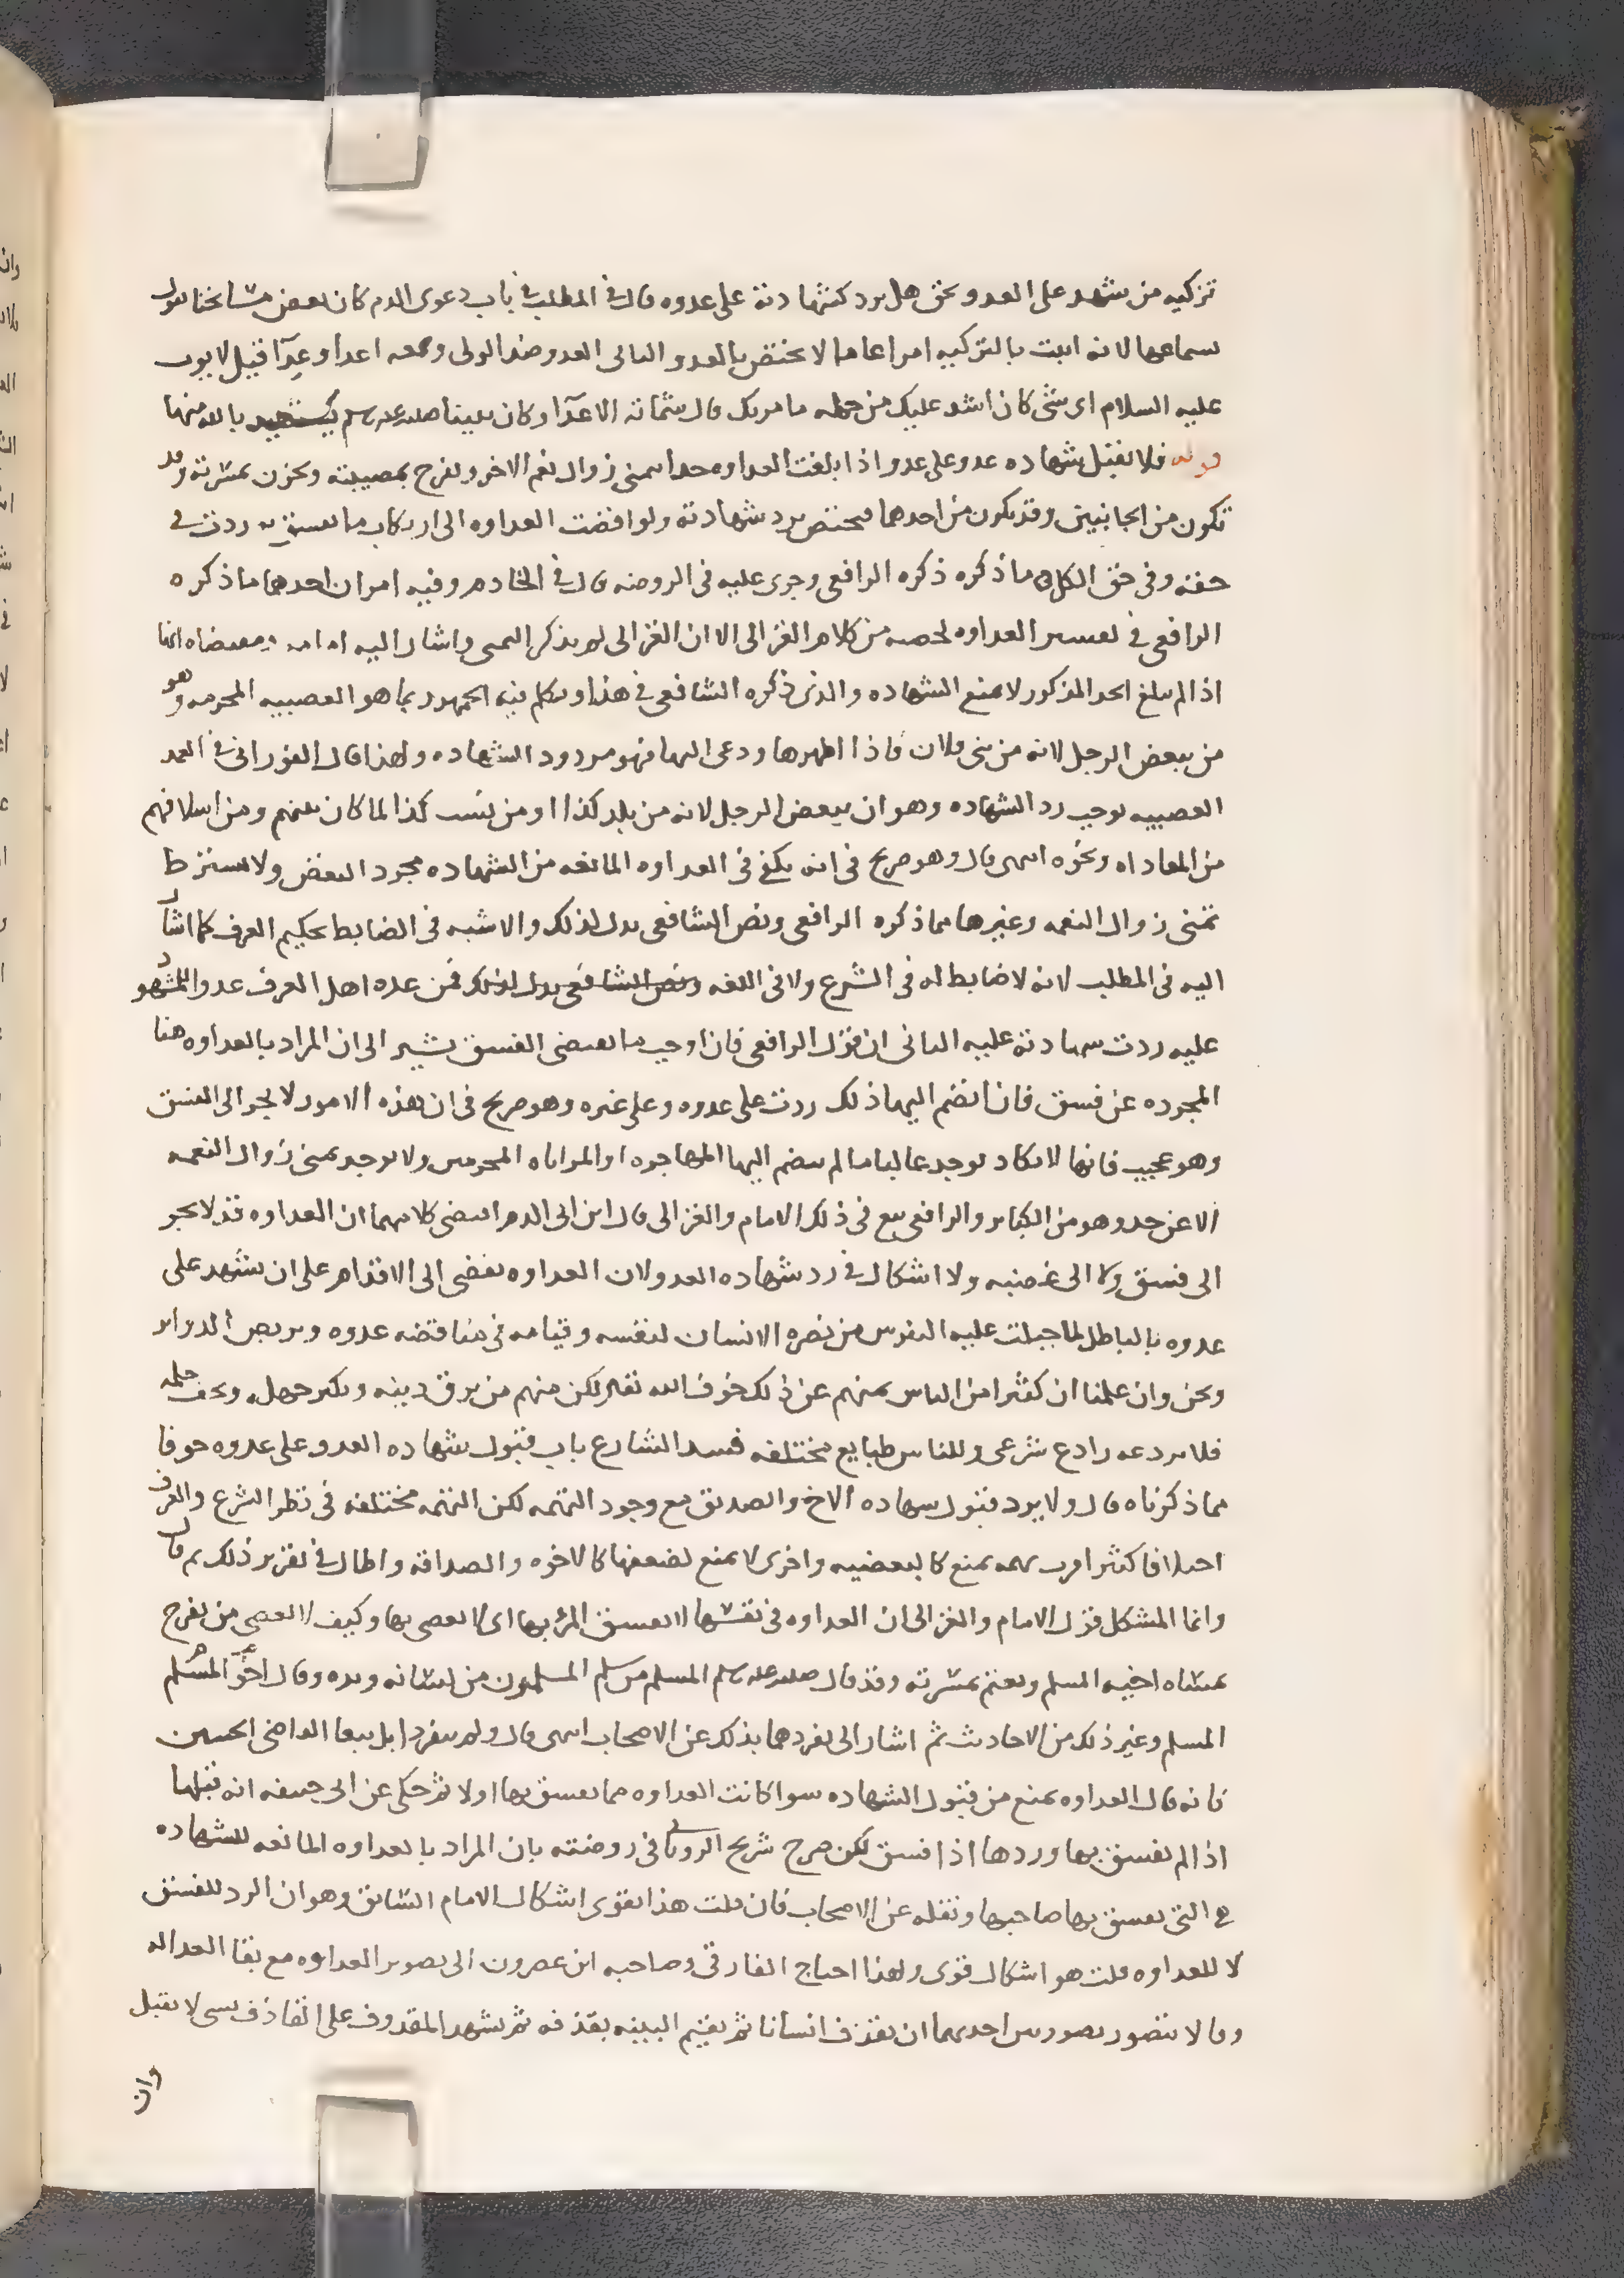 تزكيه من شهد على العدو بحق هل يرد كشهادته على عدوه قال في المطلب في باب دعوى الدم كان بعض مشايخنا يقول
سماعها لانه اثبت بالتزكيه امرا عاما لا يختص بالعدو الثاني العدو ضد الولي وجمعه اعدا وعِدًا قيل لايوب
عليه السلام اي شي كان اشد عليك من جمله ما مر بك قال شماته الاعدآ وكان نبينا صلى الله عليه وسلم يستعيذ بالله منها
قوله فلا تقبل شهاده عدو على عدو اذا بلغت العداوه حدا يتمنى زوال نعم الاخر ويفرح بمصيبته ويحزن بمسرته وقد
تكون من الجانبين وقد تكون من احدهما فيختص برد شهادته ولو افضت العداوه الى ارتكاب ما يفسق به ردت في
حقه وفي حق الكل ما ذكره ذكره الرافعي وجرى عليه في الروضه قال في الخادم وفيه امران احدهما ما ذكره
الرافعي في تفسير العداوه لخصه من كلام الغزالي الا ان الغزالي لم يذكر التمني واشار اليه امامه ومقتضاه انها
اذا لم تبلغ الحد المذكور لا تمنع الشهاده والذي ذكره الشافعي في هذا وتكلم فيه الجمهور انما هو العصبيه المحرمه وهو
من يبغض الرجل لانه من بني فلان فاذا اظهرها ودعى اليها فهو مردود الشهاده ولهذا قال الفوراني في العمد
العصبيه توجب رد الشهاده وهو ان يبغض الرجل لانه من بلد كذا او من نسب كذا لما كان بينهم ومن اسلافهم
من المعاداه ونحوه انتهى قال وهو صريح في انه يكفي في العداوه المانعه من الشهاده مجرد البغض ولا يشترط
تمني زوال النعمه وغيرها مما ذكره الرافعي ونص الشافعي يدل لذلك والاشبه في الضابط تحكيم العرف كما اشار
اليه في المطلب لانه لا ضابط له في الشرع ولا في اللغه ونص الشافعي يدل لذلك فمن عده اهل العرف عدوا للمشهود
عليه ردت شهادته عليه الثاني ان قول الرافعي فان اوجب ما يقتضي الفسق يشير الى ان المراد بالعداوه هنا
المجرده عن فسق فان انضم اليها ذلك ردت على عدوه وعلى غيره وهو صريح في ان هذه الامور لا تجر الى الفسق
وهو عجيب فانها لا تكاد توجد غالبا ما لم ينضم اليها المهاجره او المراياه المحرمين ولا يوجد تمني زوال النعمه
الا عن حسد وهو من الكباير والرافعي تبع في ذلك الامام والغزالي قال ابن ابي الدم اقتضى كلامهما ان العداوه قد لا تجر
الى فسق ولا الى غضبه ولا اشكال في رد شهاده العدو لان العداوه تفضي الى الاقدام على ان يشهد على
عدوه بالباطل لما جبلت عليه النفوس من نصره الانسان لنفسه وقيامه في مناقضه عدوه وتربص الدواير
ونحن وان علمنا ان كثيرا من الناس يمنعهم عن ذلك خوف الله تعالى لكن منهم من يرق دينه ويكثر جهله ويخف حلمه
فلا يردعه رادع شرعي وللناس طبايع مختلفه فسد الشارع باب قبول شهاده العدو على عدوه خوفا
مما ذكرناه قال ولا يرد قبول شهاده الاخ والصديق مع وجود التهمه لكن التهمه مختلفه في نظر الشرع والعرف
اختلافا كثيرا فرب تهمه تمنع كالبعضيه واخرى لا تمنع لضعفها كالاخوه والصداقه واطال في تقرير ذلك ثم قال
وانما المشكل قول الامام والغزالي ان العداوه في نفسها لا يفسق المرء بها اي لا يعصي بها وكيف لا يعصي من يفرح
بمساه اخيه المسلم ويغتم بمسرته وقد قال صلى الله عليه وسلم المسلم من سلم المسلمون من لسانه ويده وقال المسلم اخو
المسلم وغير ذلك من الاحاديث ثم اشار الى تفردهما بذلك عن الاصحاب انتهى قال ولم ينفردا بل تبعا القاضي الحسين
فانه قال العداوه تمنع من قبول الشهاده سوا كانت العداوه مما يفسق بها او لا ثم حكى عن ابي حنيفه انه قبلها
اذا لم يفسق بها وردها اذا فسق لكن صرح شريح الروياني في روضته بان المراد بالعداوه المانعه للشهاده
هي التي يفسق بها صاحبها ونقله عن الاصحاب فان قلت هذا يقوي اشكال الامام السابق وهو ان الرد للفسق
لا للعداوه قلت هو اشكال قوي ولهذا احتاج الفارقي وصاحبه ابن عصرون الى تصوير العداوه مع بقا العداله
وقالا تتصور بصورتين احديهما ان يقذف انسانا ثم يقيم البينه بقذفه ثم يشهد المقذوف على القاذف بشي لا يقبل
وان